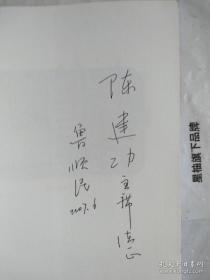 陈建功主席指正
鲁顺民
2007.6